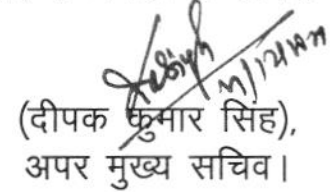 (दीपक कुमार सिंह),
अपर मुख्य सचिव।